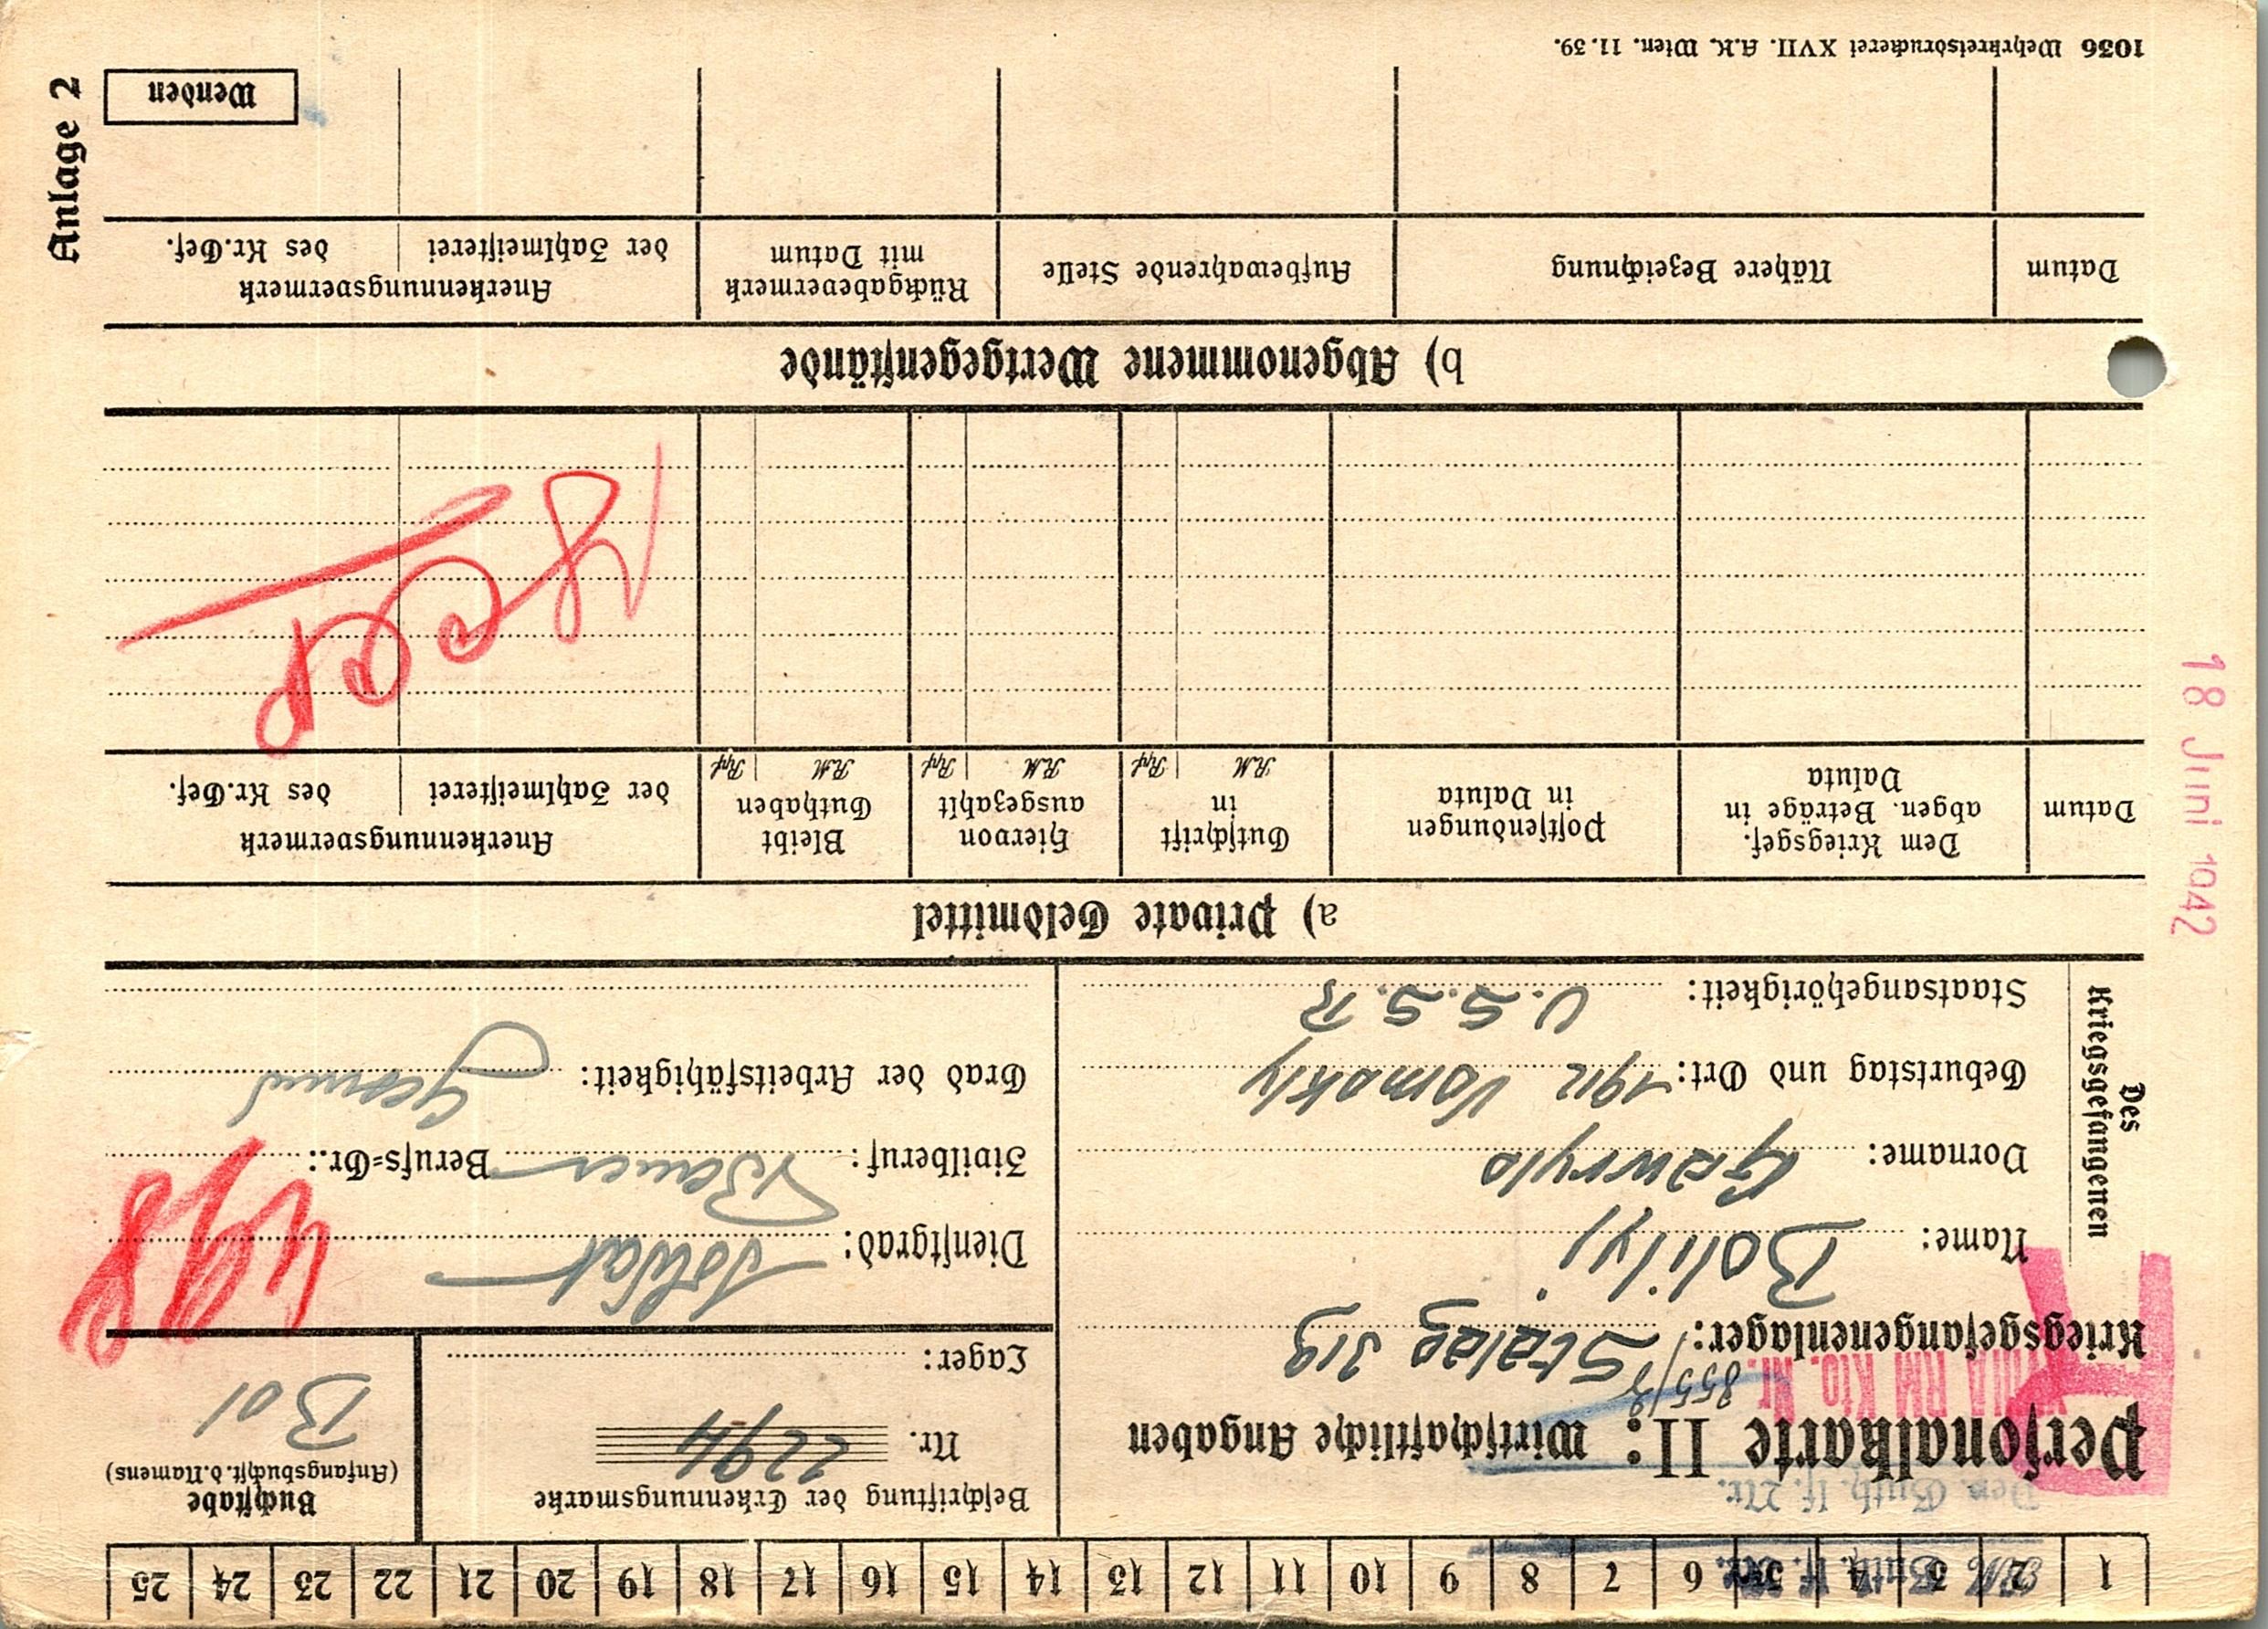 1 2 3 4 5 6 7 8 9 10 11 12 13 14 15 16 17 18 19 20 21 22 23 24 25
Dev. Guth. lf. Nr.
RM Guth. lf. Nr.
Personalkarte II: Wirtschaftliche Angaben
RM Kto. Nr.
855/8
Kriegsgefangenenlager: Stalag 319
Beschriftung der Erkennungsmarke
Nr. 2294
Lager:
Buchstabe
(Anfangsbuchst. d. Namens)
Bol
Des
Kriegsgefangenen
Name: Bolilyj
Vorname: Gawrylo
Geburtstag und Ort: 1912 Vomakly
Staatsangehörigkeit: U.S.S.R
Dienstgrad: Soldat
Zivilberuf: Bauer Berufs-Gr.:
Grad der Arbeitsfähigkeit: Gesund
18 Juni 1942
a) Private Geldmittel
Datum
Dem Kriegsgef.
abgen. Beträge in
Valuta
Postsendungen
in Valuta
Gutschrift
in
RM Rpf
Hiervon
ausgezahlt
RM Rpf
Bleibt
Guthaben
RM Rpf
Anerkennungsvermerk
der Zahlmeisterei
des Kr.Gef.
b) Abgenommene Wertgegenstände
Datum
Nähere Bezeichnung
Aufbewahrende Stelle
Rückgabevermerk
mit Datum
Anerkennungsvermerk
der Zahlmeisterei
des Kr.Gef.
Wenden
Anlage 2
1036 Wehrkreisdruckerei XVII. A.K. Wien. 11.39.